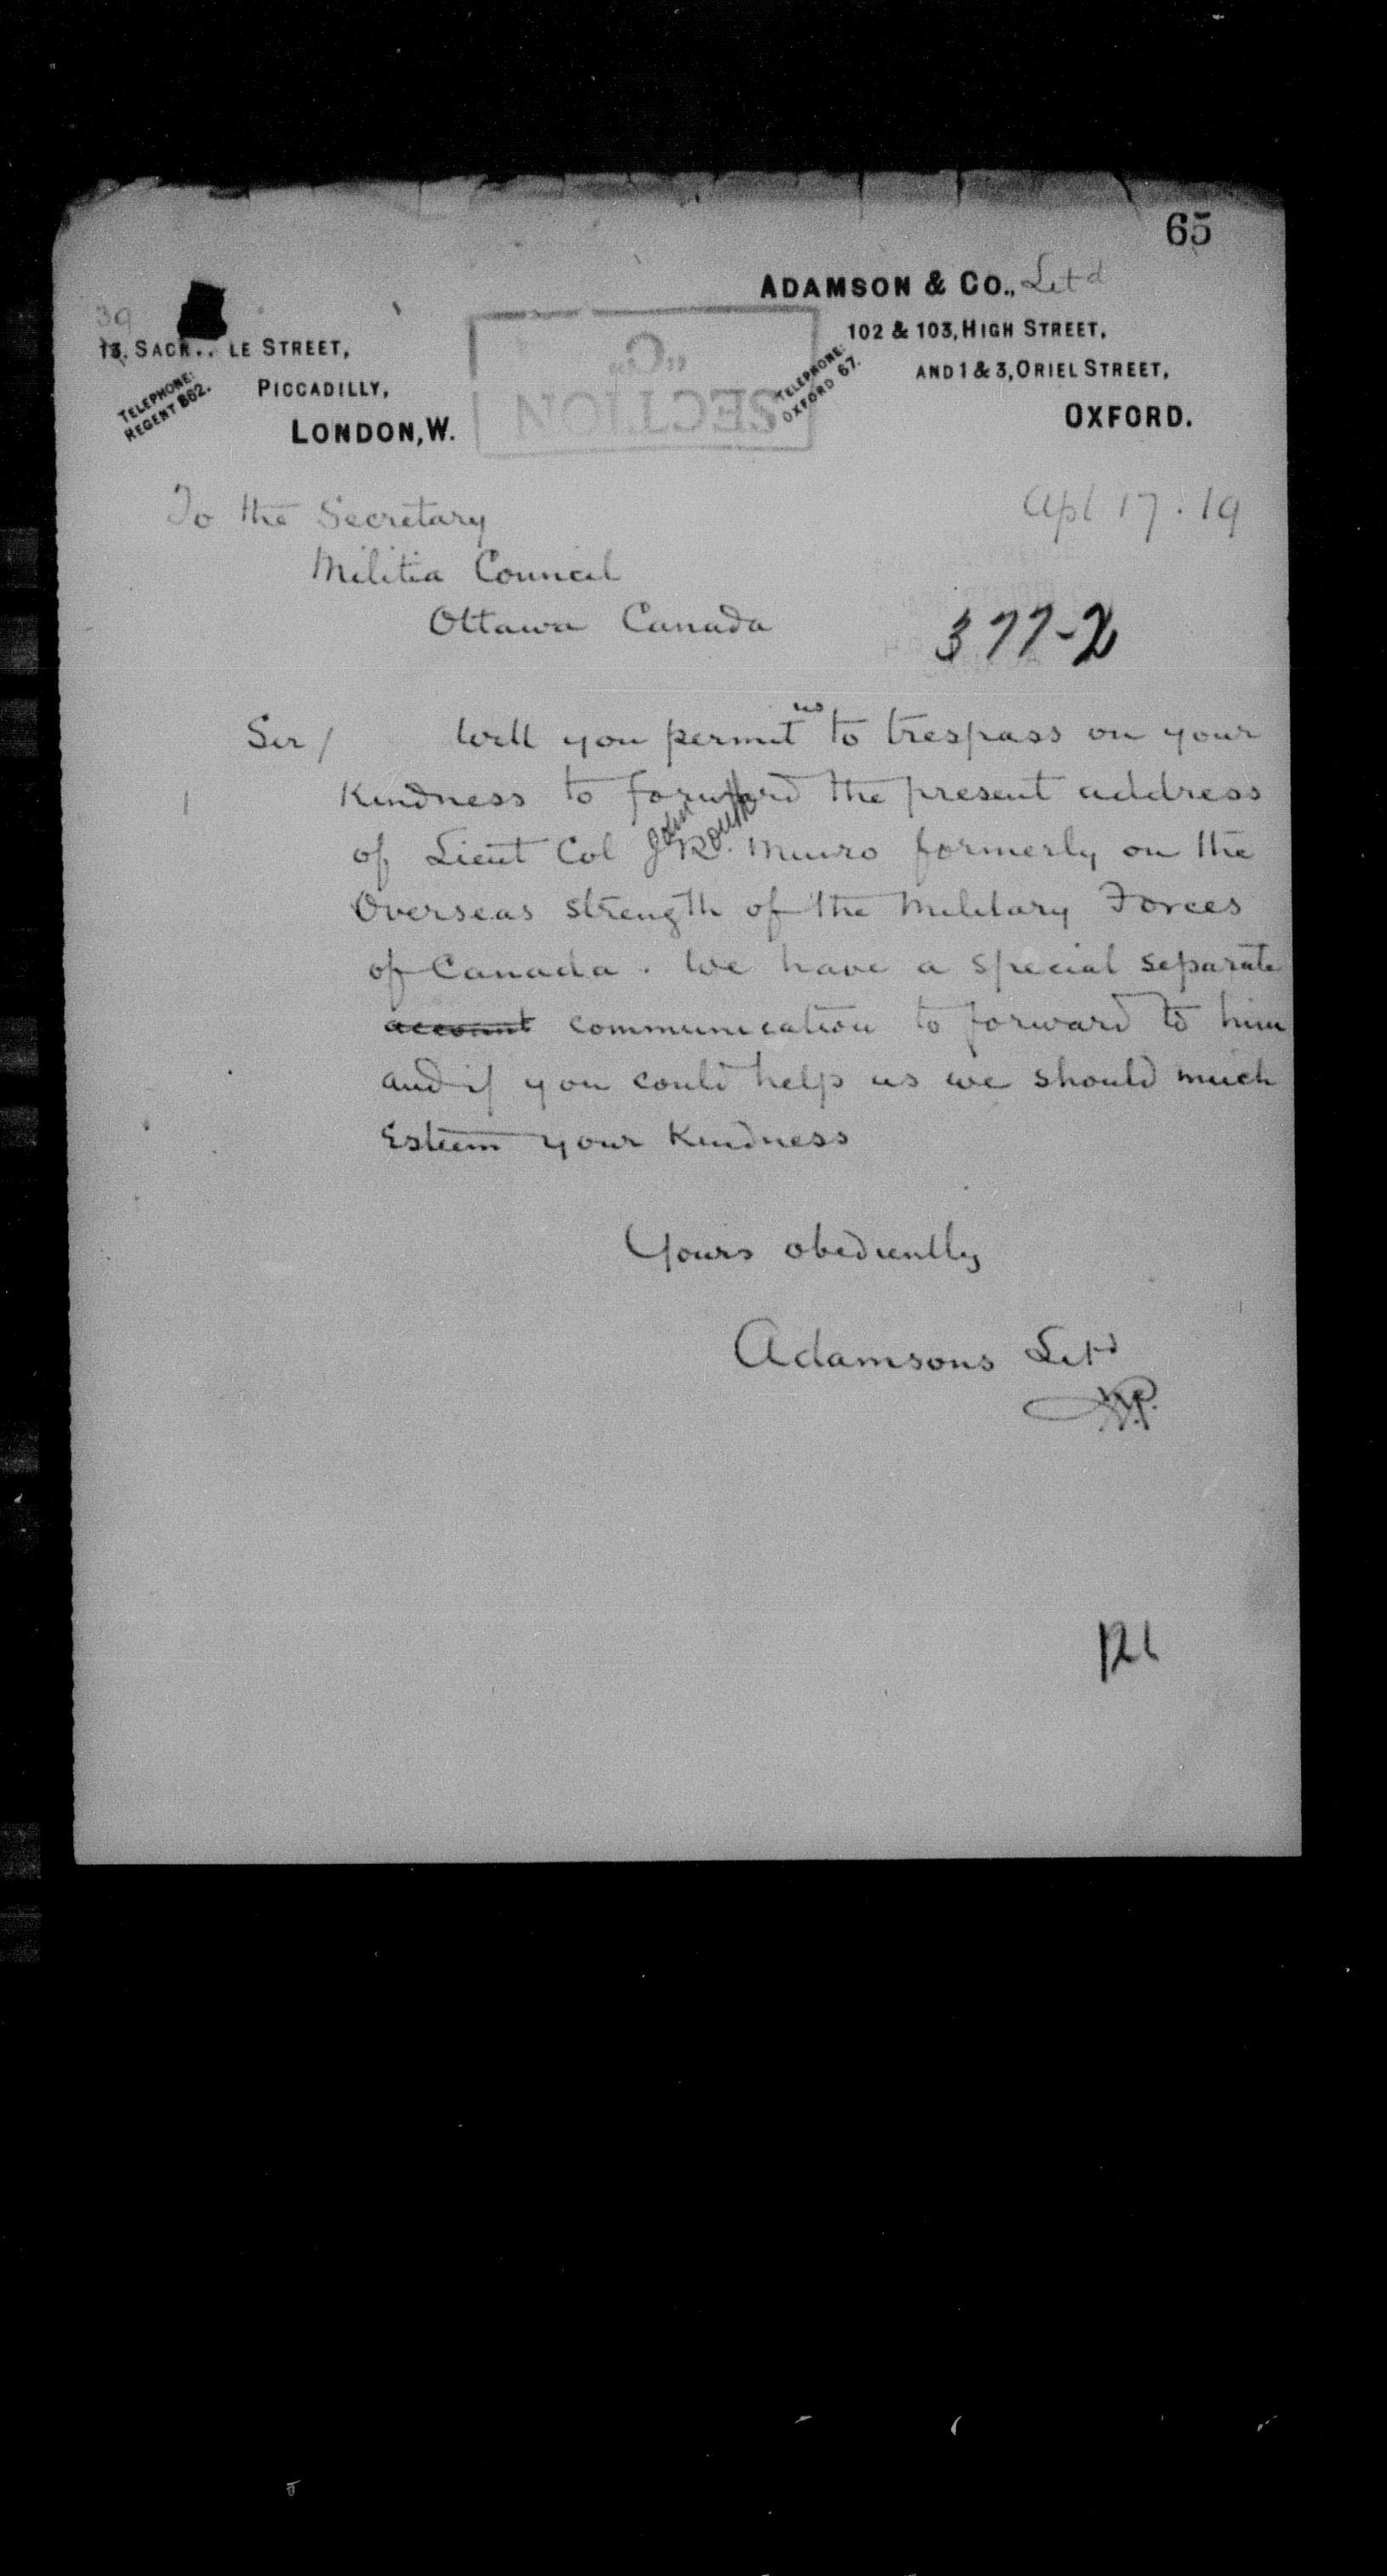 65
ADAMSON & CO., Ltd
102 & 103, HIGH STREET,
AND 1 & 3, ORIEL STREET,
OXFORD.
TELEPHONE:
OXFORD 67.
39
13. SACK LE STREET,
PICCADILLY,
LONDON, W.
TELEPHONE:
REGENT 862.
SECTION
"C"
Apl 17. 19
To the Secretary
Militia Council
Ottawa Canada
377-2
Sir / Will you permit us to trespass on your
kindness to forward the present address
of Lieut Col John Routh Munro formerly on the
Overseas strength of the Military Forces
of Canada. We have a special separate
account communication to forward to him
and if you could help us we should much
Esteem your kindness
Yours obediently
Adamsons Ltd